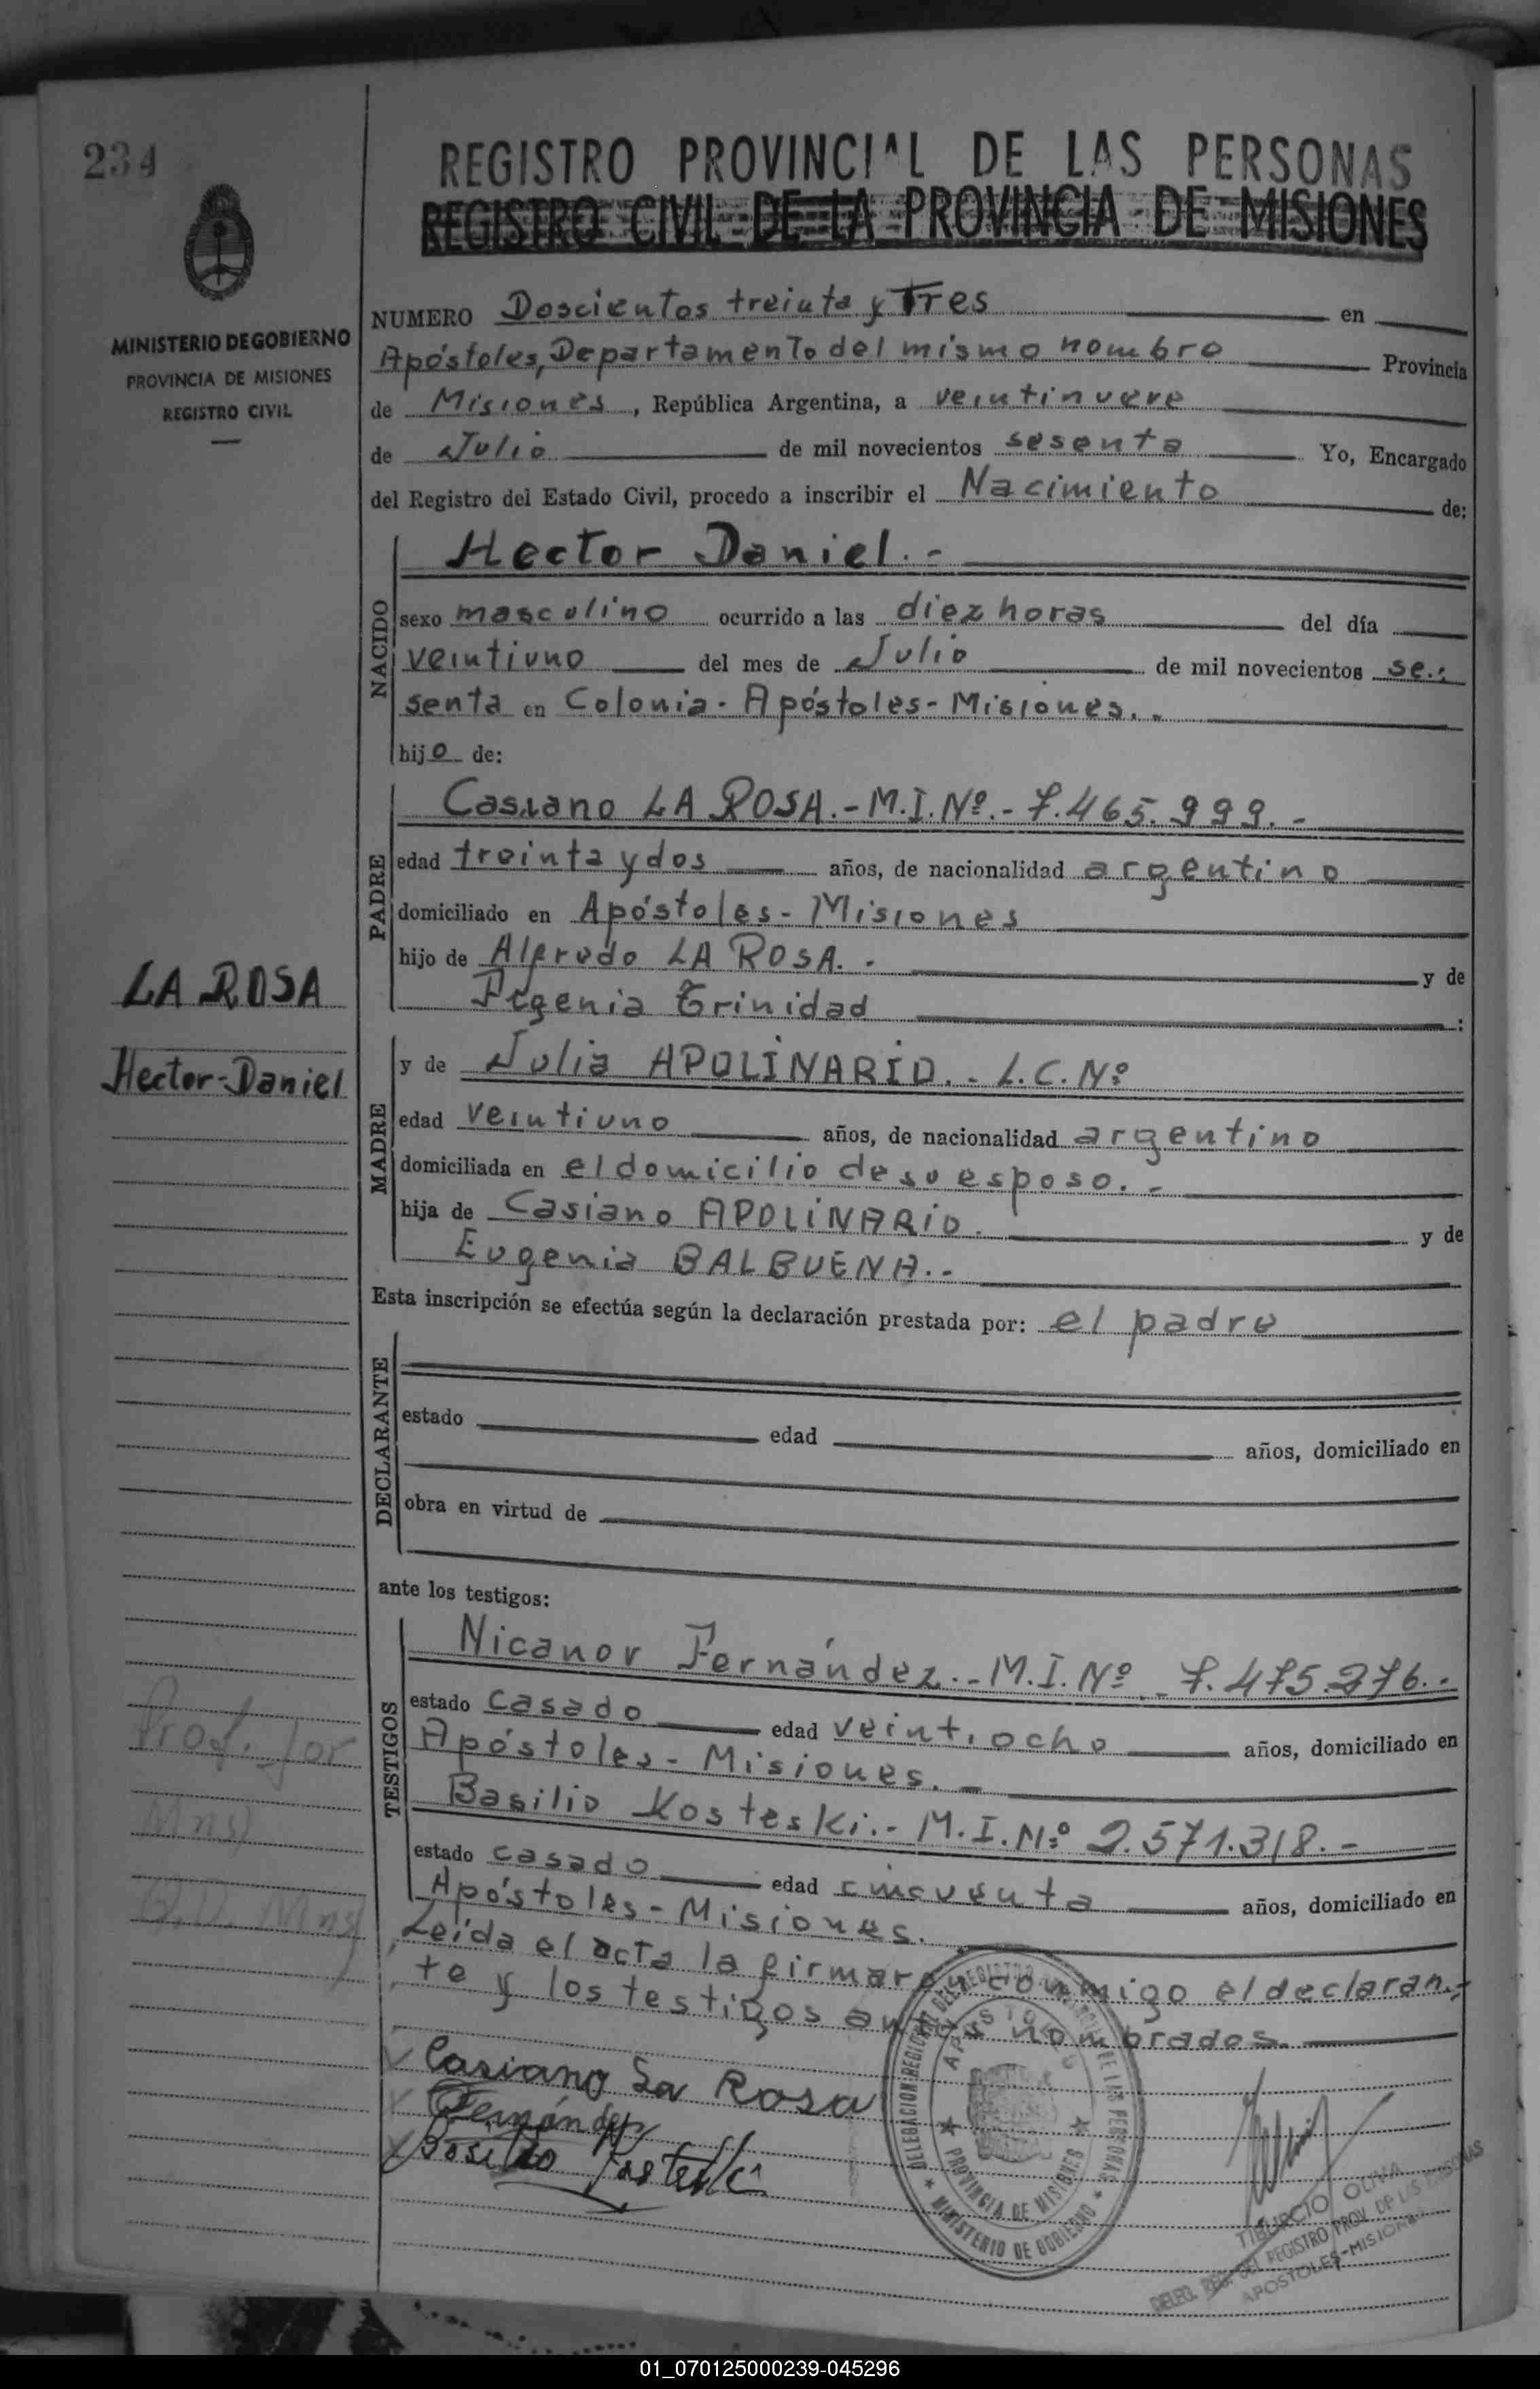 234
REGISTRO PROVINCIAL DE LAS PERSONAS
REGISTRO CIVIL DE LA PROVINCIA DE MISIONES
MINISTERIO DE GOBIERNO
PROVINCIA DE MISIONES
REGISTRO CIVIL
NUMERO Doscientos treinta y Tres en
Apóstoles, Departamento del mismo nombre Provincia
de Misiones, República Argentina, a veintinueve
de Julio de mil novecientos sesenta Yo, Encargado
del Registro del Estado Civil, procedo a inscribir el Nacimiento de:
NACIDO
Hector Daniel.-
sexo masculino ocurrido a las diez horas del día
veintiuno del mes de Julio de mil novecientos se-
senta en Colonia - Apóstoles - Misiones.-
hijo de:
PADRE
Casiano LA ROSA.- M.I.Nº.- 7.465.999.-
edad treinta y dos años, de nacionalidad argentino
domiciliado en Apóstoles - Misiones
hijo de Alfredo LA ROSA.- y de
Trinidad :
LA ROSA
Hector-Daniel
MADRE
y de Julia APOLINARIO.- L.C.Nº
edad veintiuno años, de nacionalidad argentino
domiciliada en el domicilio de su esposo.-
hija de Casiano APOLINARIO. y de
Eugenia BALBUENA.-
Esta inscripción se efectúa según la declaración prestada por: el padre
DECLARANTE
estado edad años, domiciliado en
obra en virtud de
ante los testigos:
TESTIGOS
Nicanor Fernández.- M.I.Nº 7.475.276.-
estado casado edad veintiocho años, domiciliado en
Apóstoles - Misiones.-
Basilio Kosteski.- M.I.Nº 2.571.318.-
estado casado edad cincuenta años, domiciliado en
Apóstoles - Misiones.
Leída el acta la firmaron conmigo el declaran-
te y los testigos antes nombrados.
Casiano La Rosa
Fernández
Basilio Kosteski
DELEGACION REGIONAL DEL REGISTRO PROVINCIAL DE LAS PERSONAS
APOSTOLES
PROVINCIA DE MISIONES
MINISTERIO DE GOBIERNO
TIBURCIO OLIVA
DELEG. REG. DEL REGISTRO PROV. DE LAS PERSONAS
APOSTOLES-MISIONES
01_070125000239-045296